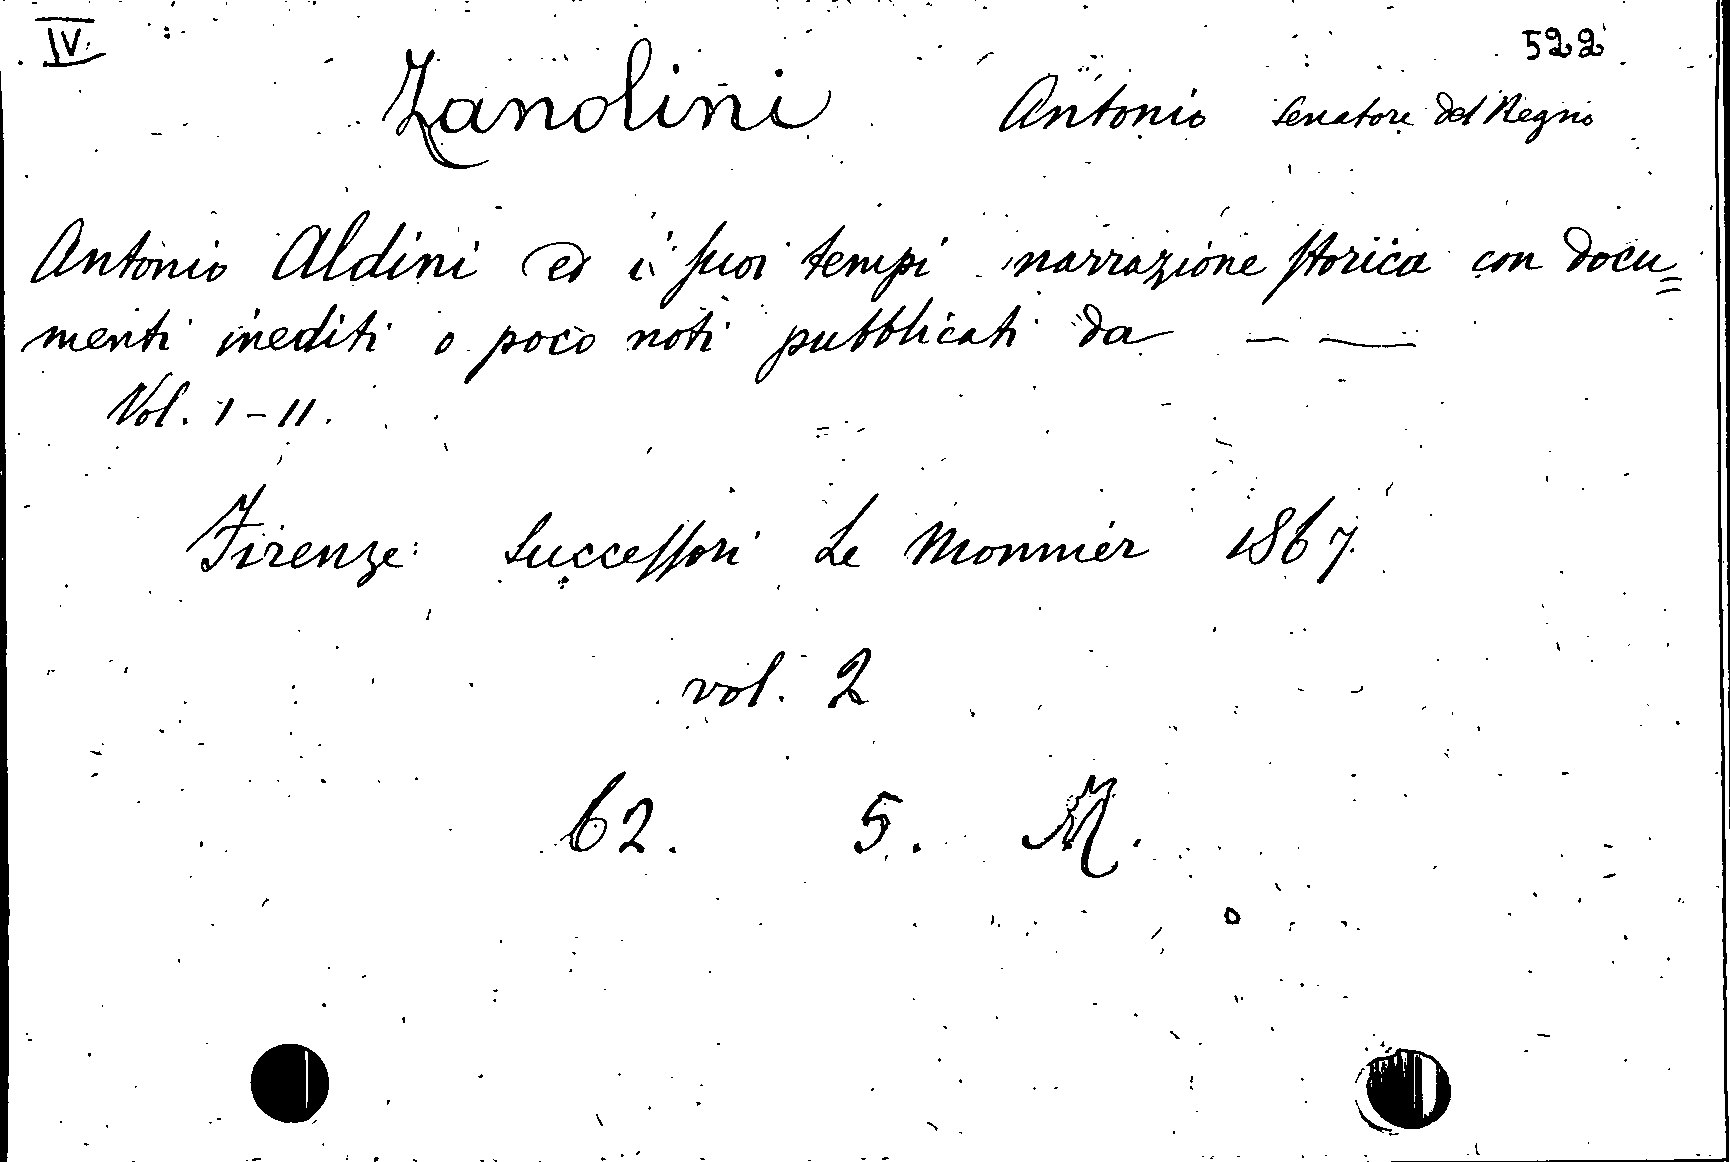 IV.
522
Zanolini Antonio Senatore del Regno
Antonio Aldini ed i suoi tempi narrazione storica con docu=
menti inediti o poco noti pubblicati da — —
Vol. I - II.
Firenze: Successori Le Monnier 1867.
vol. 2
62. 5. M.